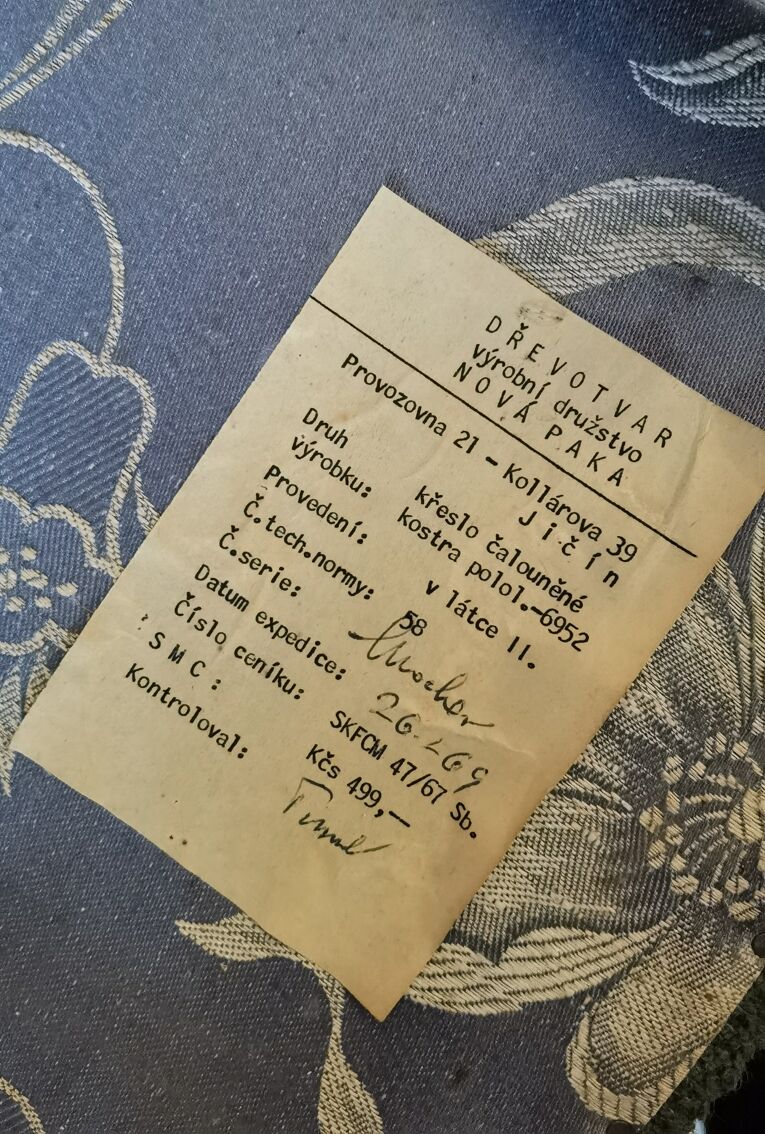 DŘEVOTVAR
výrobní družstvo
NOVÁ PAKA
Provozovna 21 - Kollárova 39
Jičín
Druh
výrobku: křeslo čalouněné
kostra polol.-6952
Provedení: v látce II.
Č.tech.normy: 58
Č.serie:
Datum expedice: 26. 69
Číslo ceníku: SKFCM 47/67 Sb.
SMC: Kčs 499,-
Kontroloval: